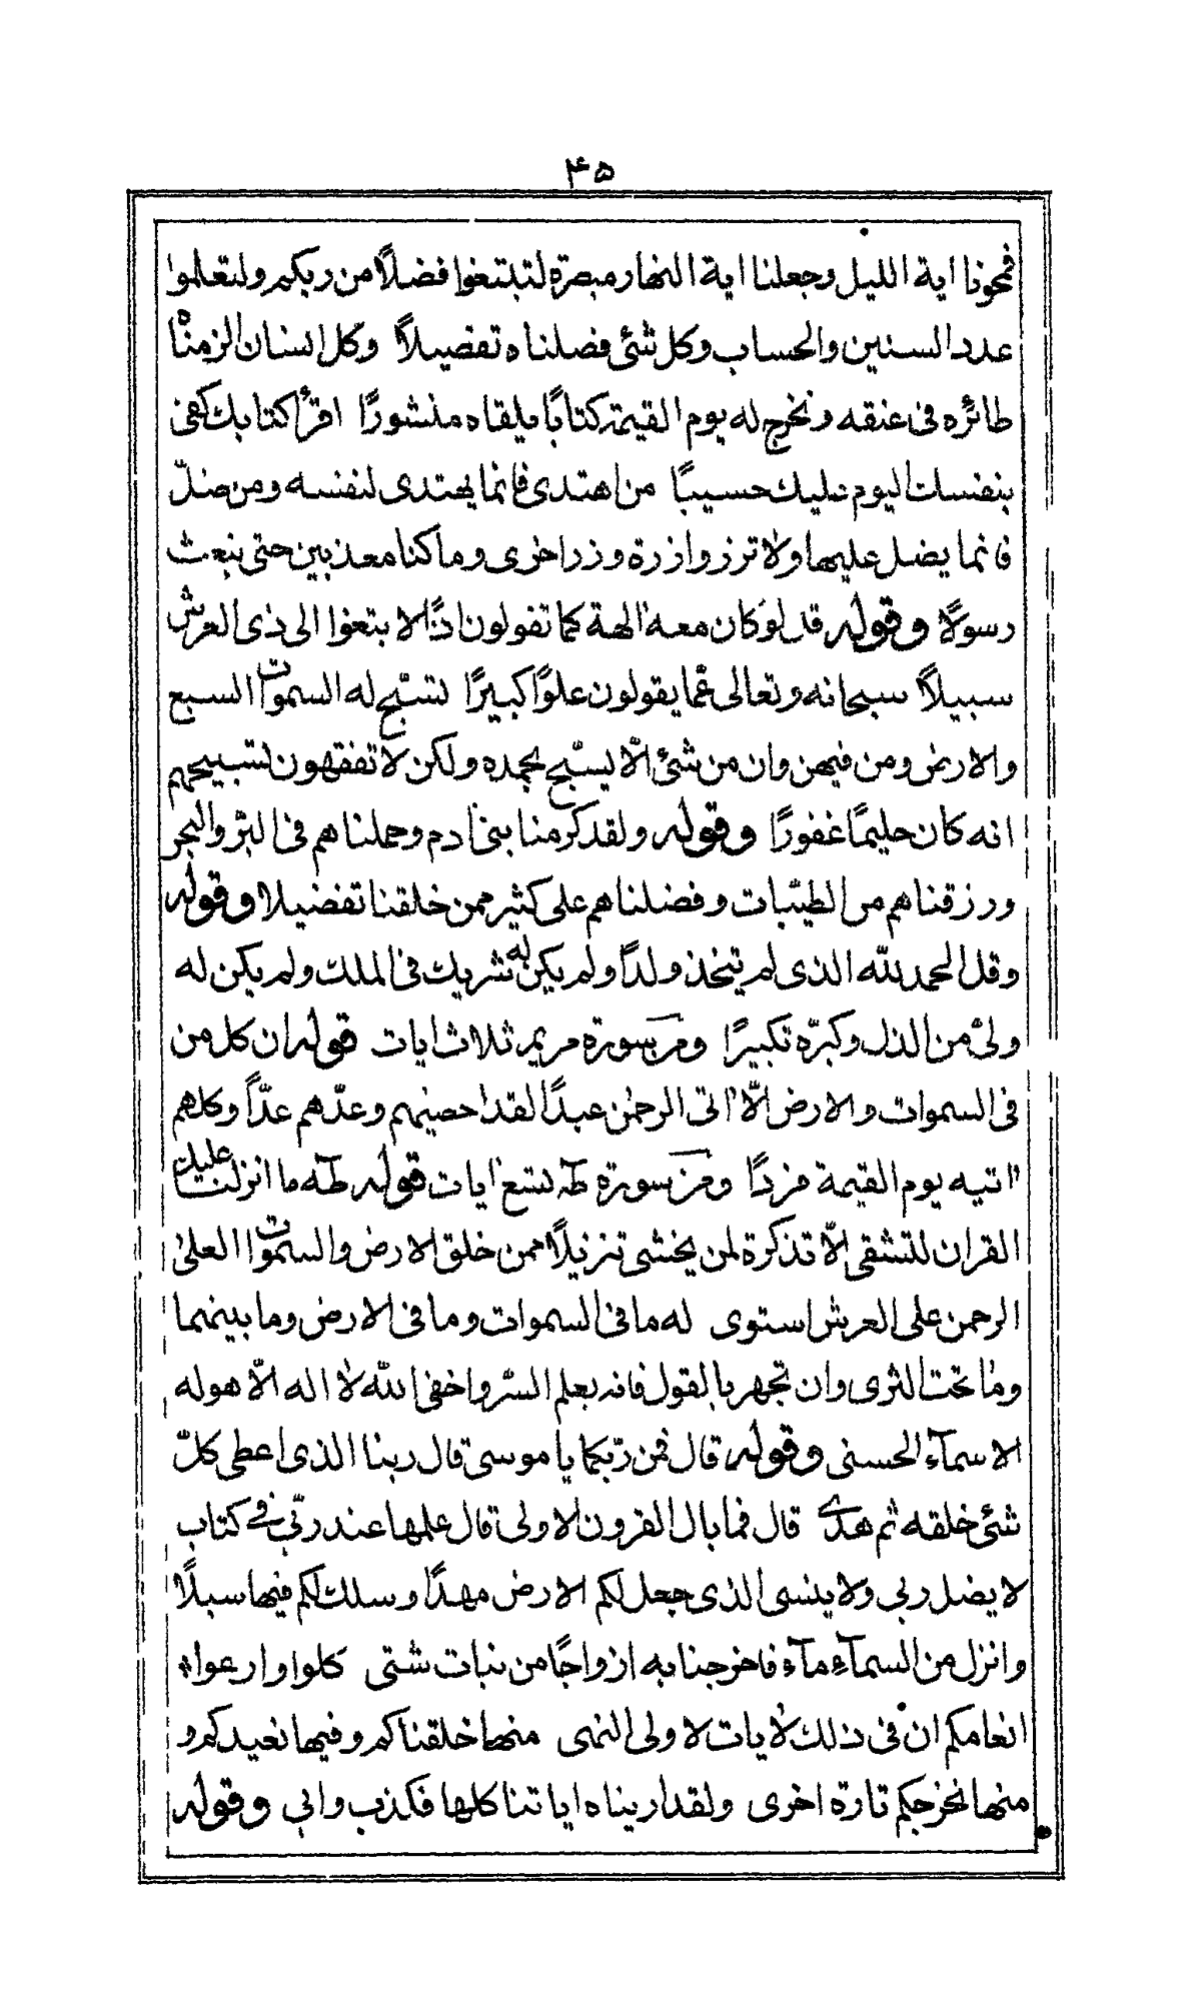 ۴۵
فمحونا اية الليل وجعلنا اية النهار مبصرة لتبتغوا فضلاً من ربكم ولتعلموا
عدد السنين والحساب وكل شئ فصلناه تفصيلاً وكل انسان الزمنٰاه
طائره فى عنقه ونخرج له يوم القيمة كتابًا يلقاه منشورًا اقرأ كتابك كفى
بنفسك اليوم عليك حسيبًا من اهتدى فانما يهتدى لنفسه ومن ضلّ
فانما يضل عليها ولا تزر وازرة وزر اخرى وما كنا معذبين حتى نبعث
رسولًا وقوله قل لو كان معه الهة كما تقولون اذًا لا بتغوا الى ذى العرش
سبيلاً سبحانه وتعالى عمّا يقولون علوًا كبيرًا تسبّح له السموات السبع
والارض ومن فيهن وان من شئ الّا يسبّح بحمده ولكن لا تفقهون تسبيحهم
انه كان حليمًا غفورًا وقوله ولقد كرمنا بنى ادم وحملناهم فى البرّ والبحر
ورزقناهم من الطيّبات وفضلناهم على كثير ممن خلقنا تفضيلا وقوله
وقل الحمد لله الذى لم يتخذ ولدًا ولم يكن له شريك فى الملك ولم يكن له
ولىّ من الذل وكبرّه تكبيرًا ومن سورة مريم ثلاث ايات قوله ان كل من
فى السموات والارض الّا اتى الرحمٰن عبدًا لقد احصيهم وعدّهم عدّاً وكلهم
اتيه يوم القيمة فردًا ومن سورة طه تسع ايات قوله طه ما انزلنا عليك
القران للتشقى الّا تذكرة لمن يخشى تنزيلاً ممن خلق الارض والسموات العلىٰ
الرحمن على العرش استوى له ما فى السموات وما فى الارض وما بينهما
وما تحت الثرى وان تجهر بالقول فانه يعلم السّر واخفى الله لا اله الّا هو له
الاسمآء الحسنى وقوله قال فمن ربّكما يا موسى قال ربنا الذى اعطى كلّ
شئ خلقه ثم هدى قال فما بال القرون الاولى قال علمها عند ربّى فى كتاب
لا يضل ربى ولا ينسى الذى جعل لكم الارض مهدًا وسلك لكم فيها سبلًا
وانزل من السمآء مآء فاخرجنا به ازواجًا من نبات شتى كلوا وارعواء
انعامكم ان فى ذلك لايات لاولى النهى منها خلقناكم وفيها نعيدكم و
منها نخرجكم تارة اخرى ولقد اريناه اياتنا كلها فكذب وابى وقوله